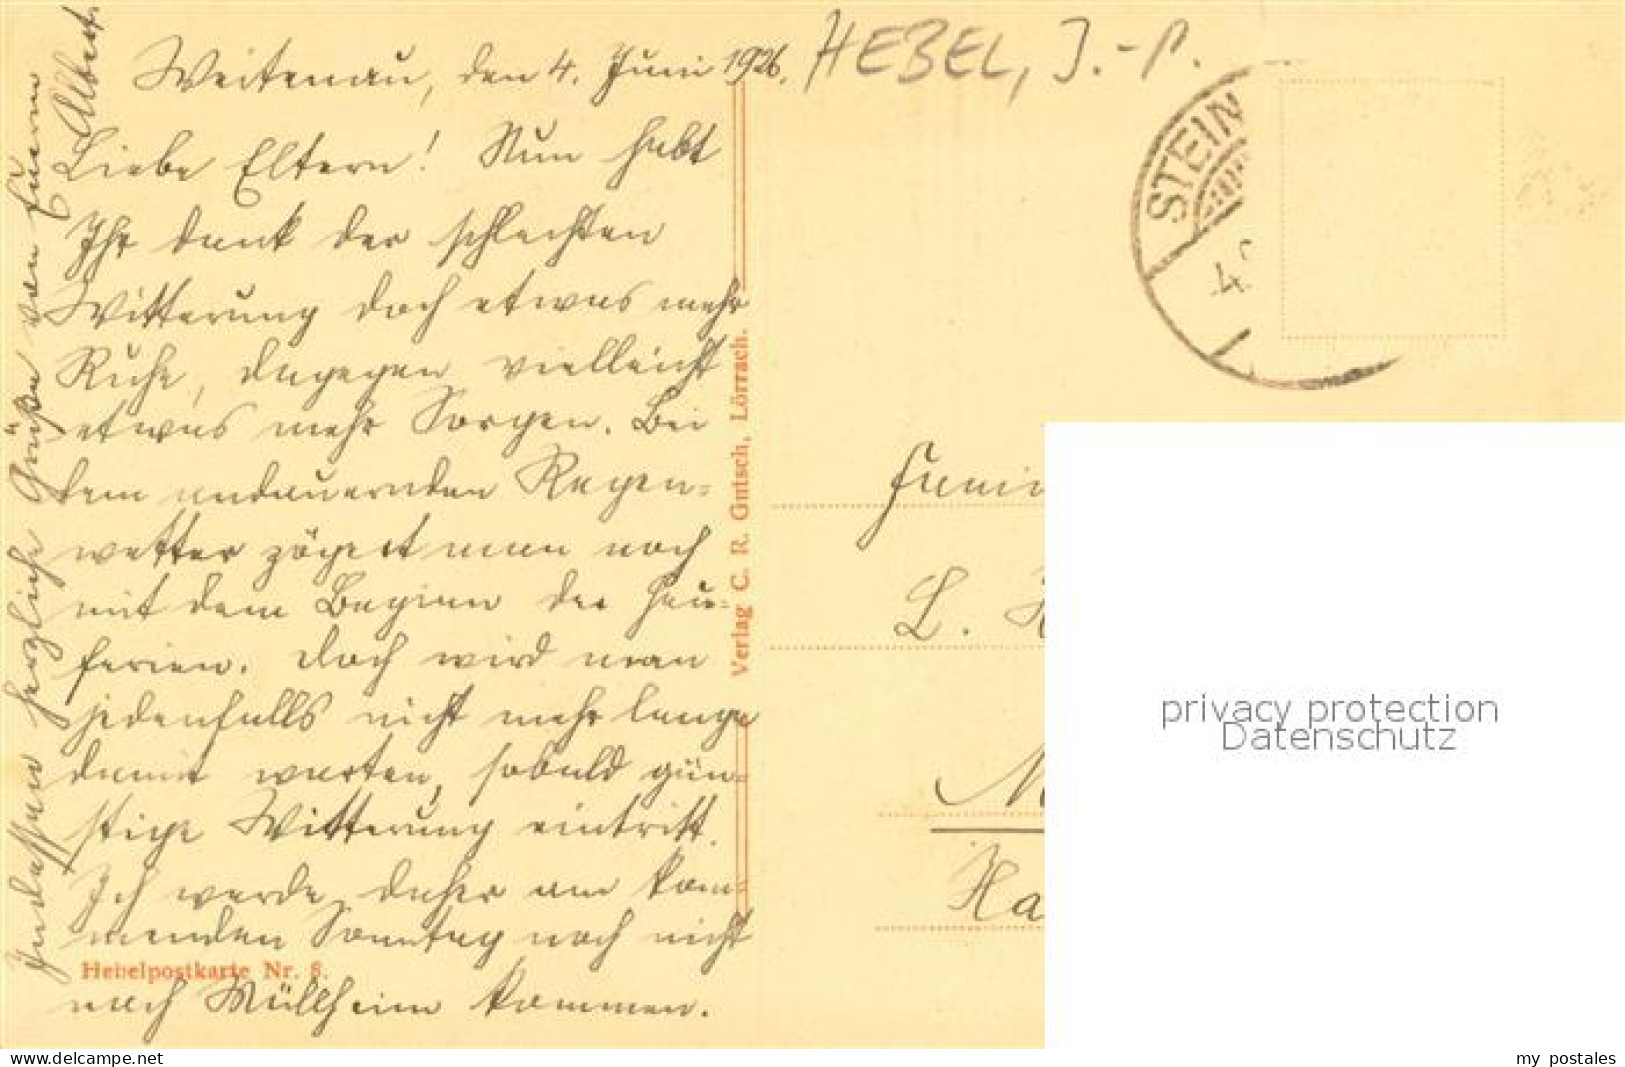 Weitenau, den 4. Juni 1926.
Liebe Eltern! Nun habt
Ihr dank der schlechten
Witterung doch etwas mehr
Ruhe, dagegen vielleicht
etwas mehr Sorgen. Bei
dem andauernden Regen=
wetter zögert man noch
mit dem Beginn der Heu=
ferien. Doch wird man
jedenfalls nicht mehr lange
damit warten, sobald gün=
stige Witterung eintritt.
Ich werde daher am kom=
menden Sonntag noch nicht
nach Müllheim kommen.
Indessen herzliche Grüße von Euerm
Albert.
HEBEL, J.-P.
STEIN
4.
Verlag C. R. Gutsch, Lörrach.
Hebelpostkarte Nr. 8.
L.
M
Ha
privacy protection
Datenschutz
www.delcampe.net
my_postales